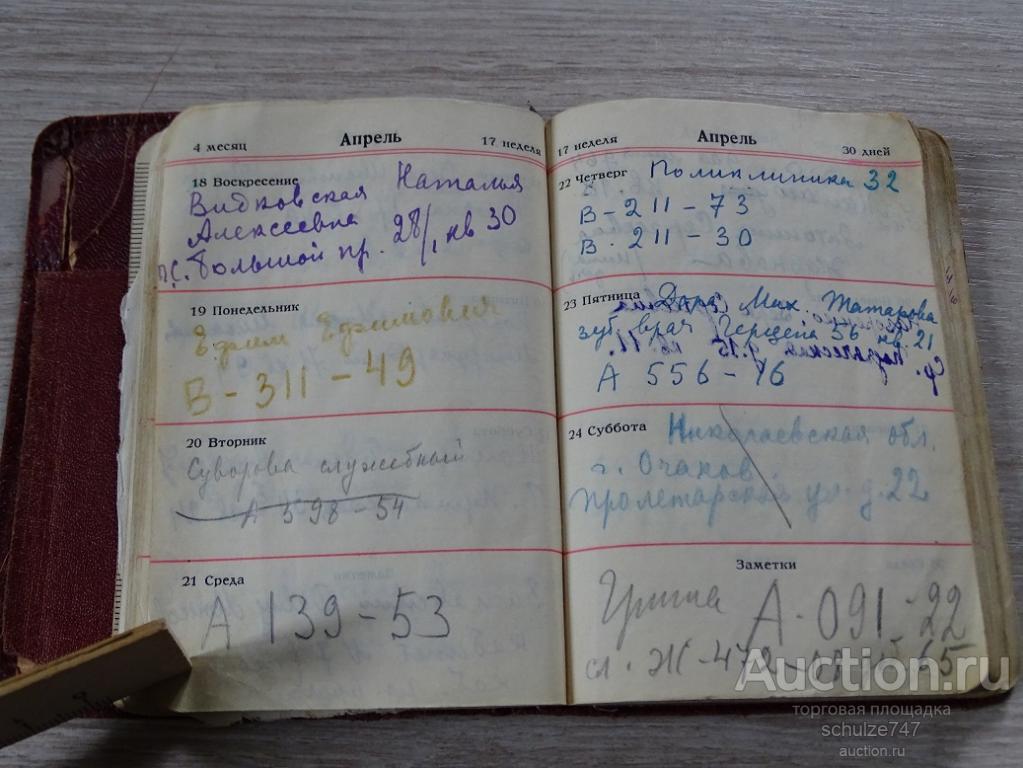 4 месяц Апрель 17 неделя
18 Воскресение
Видковская Наталья
Алексеевна
Большой пр. 28/1 кв 30
19 Понедельник
Ефим Ефимович
В-311-49
20 Вторник
Суворова служебный
А 398-54
21 Среда
А 139-53
17 неделя Апрель 30 дней
22 Четверг Поликлиника 32
В-211-73
В-211-30
23 Пятница Дора Мих. Татарова
зуб. врач Герцена 56 кв. 21
А 556-76
24 Суббота Николаевская обл.
г. Очаков.
Пролетарской ул. д. 22
Заметки
Гриша А-091-22
сл. Ж-472
Auction.ru
торговая площадка
schulze747
auction.ru